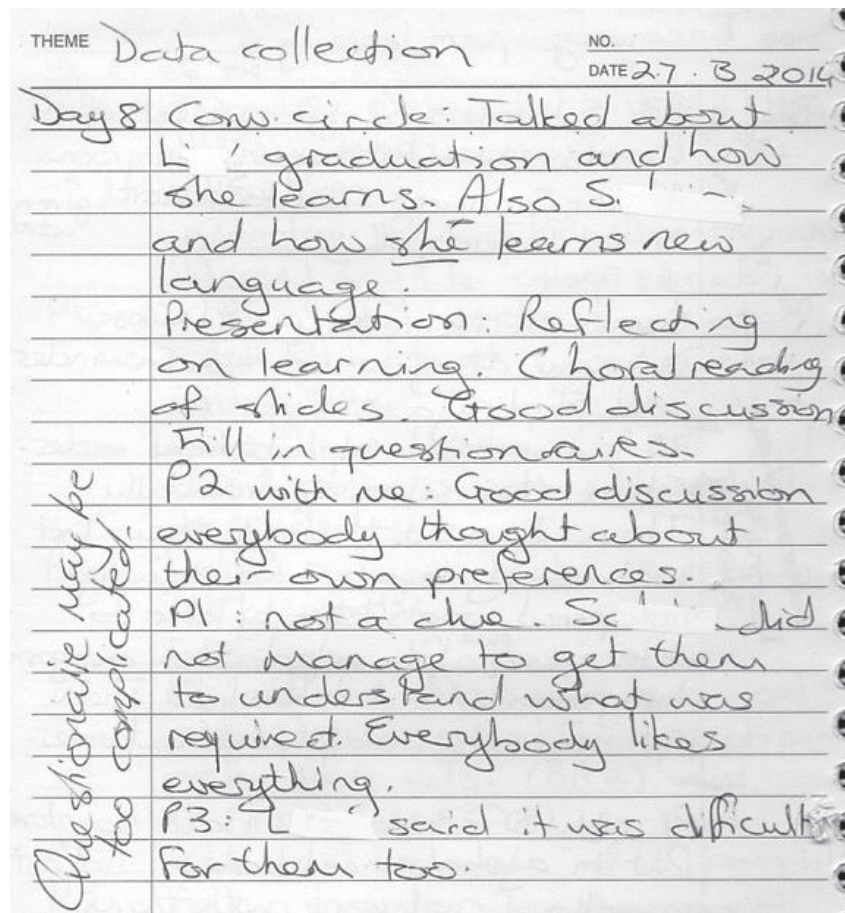 THEME Data collection
NO.
DATE 27. 3 2014
Day 8 Conv. circle. Talked about
L graduation and how
she learns. Also S.
and how she learns new
language
Presentation Reflecting
on learning Choral reading
of slides. Good discussion
Fill in questionaires.
P2 with me. Good discussion
everybody thought about
their own preferences.
P1 not a clue. Sc did
not manage to get them
to understand what was
required. Everybody likes
everything.
P3: L said it was difficult
for them too.
Questionaire may be
too complicated!